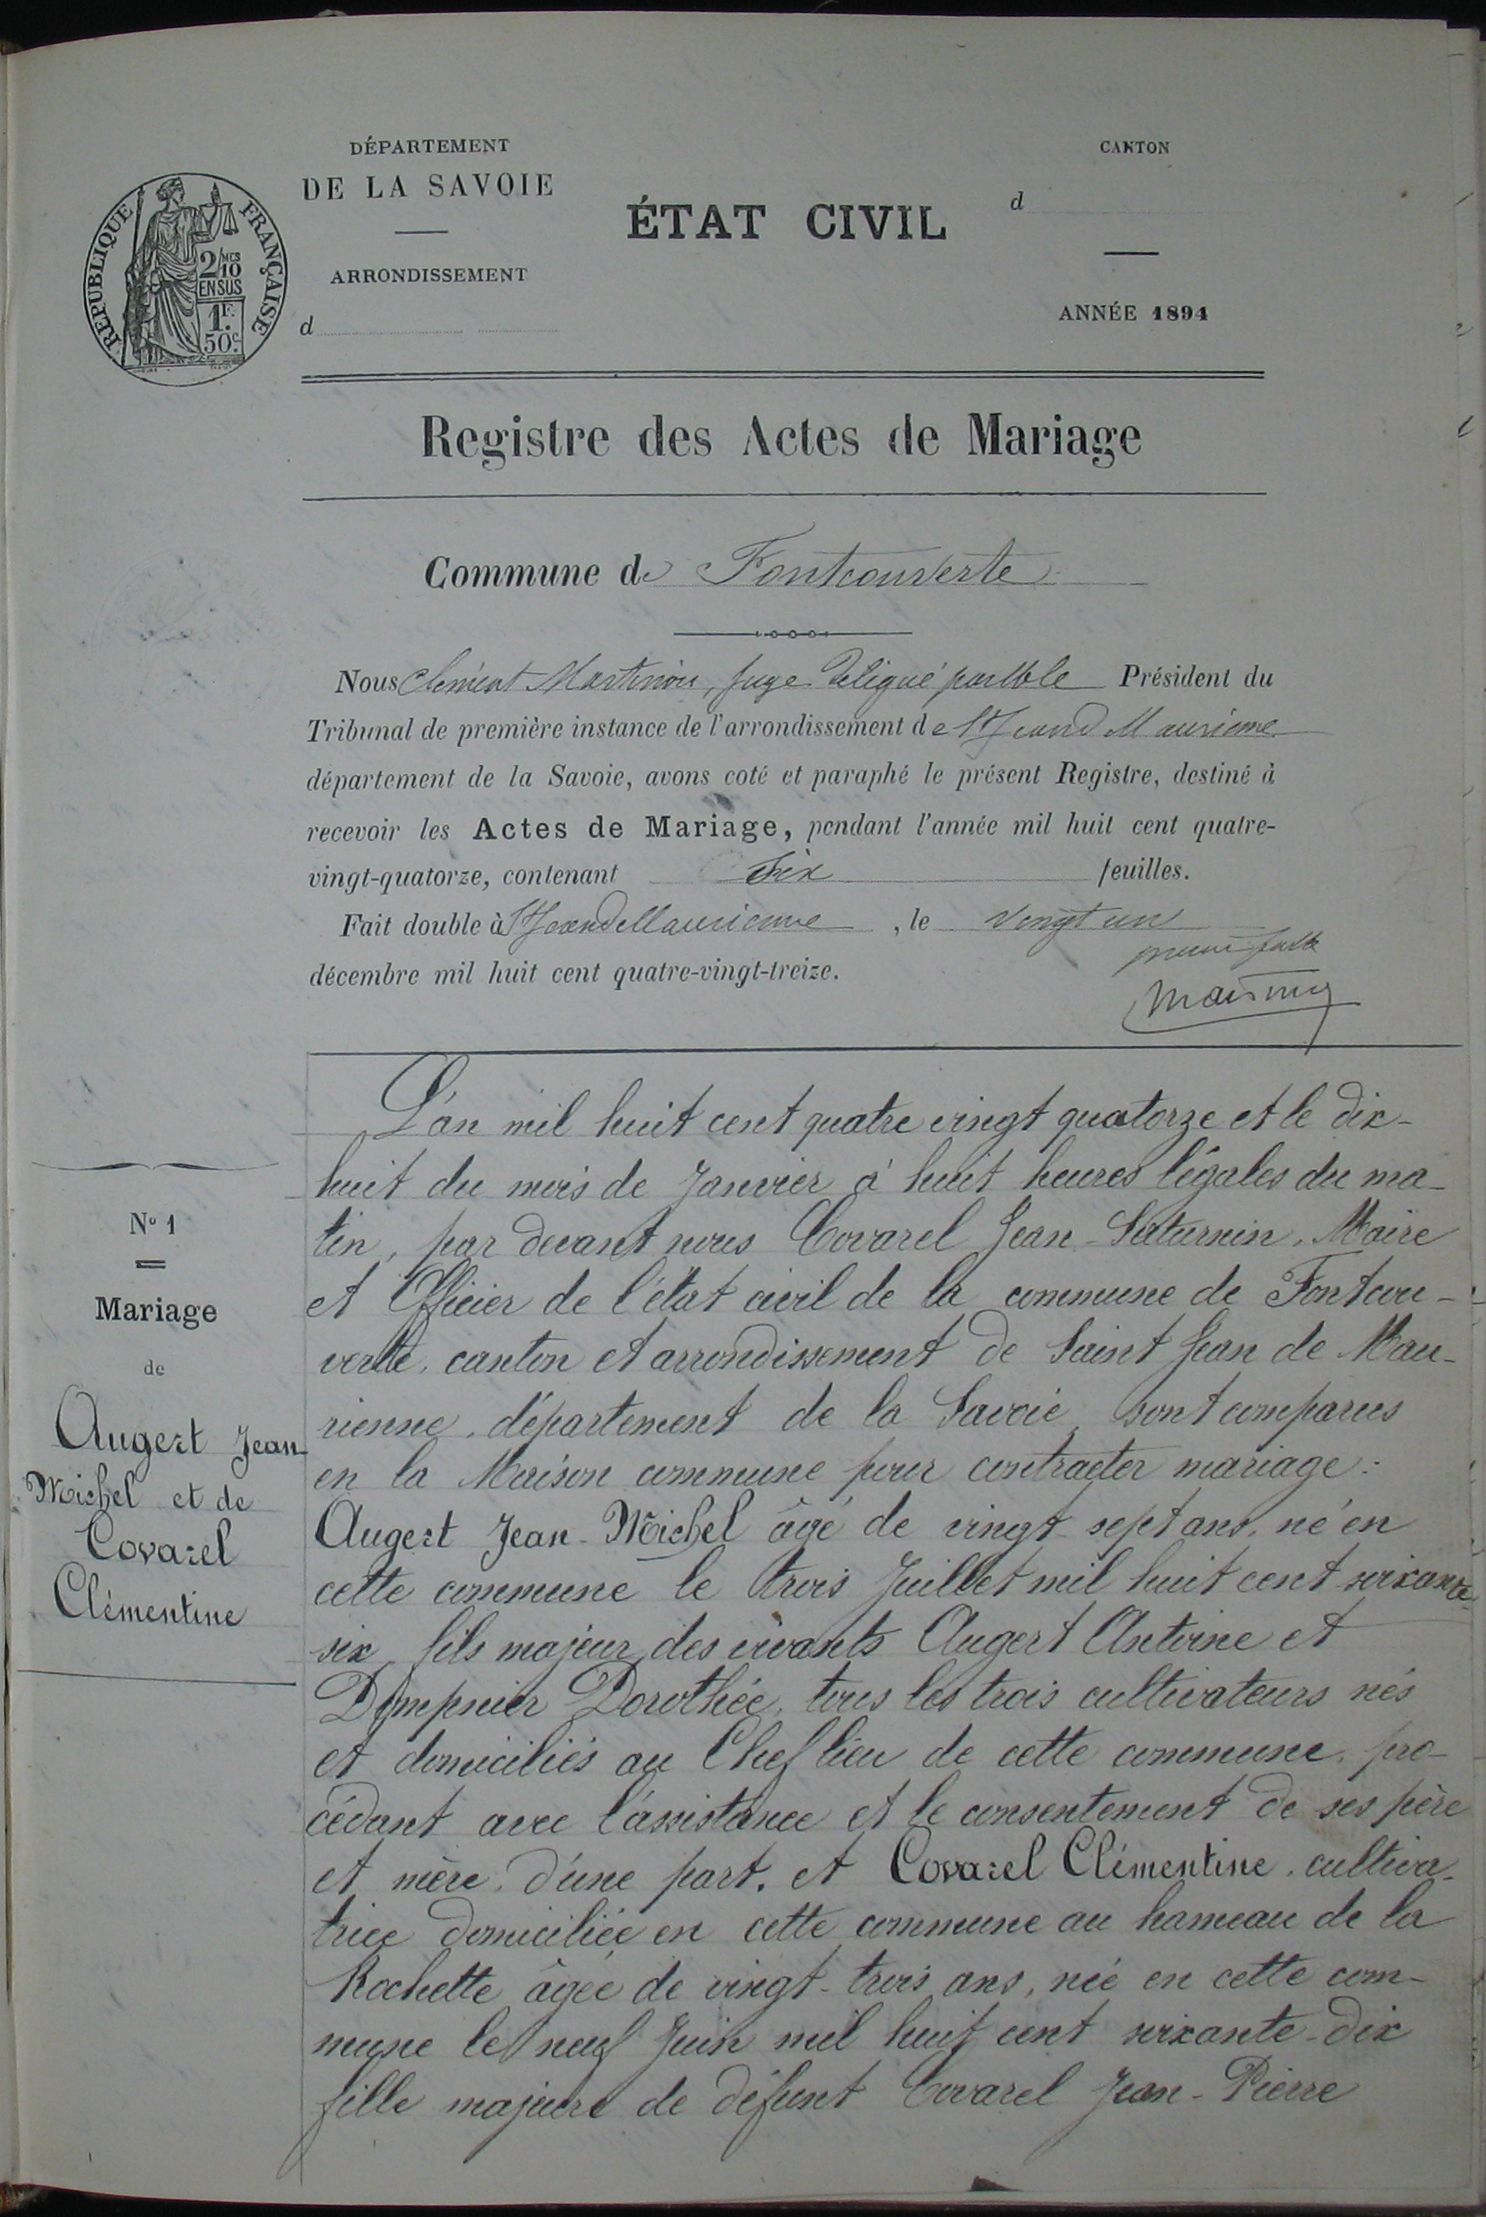 DÉPARTEMENT
DE LA SAVOIE
ARRONDISSEMENT
d
RÉPUBLIQUE FRANÇAISE
2/MES 10
EN SUS
1F.
50c.
ÉTAT CIVIL
CANTON
d
ANNÉE 1894
Registre des Actes de Mariage
Commune de Fontcouverte
Nous Clément Martinon, Juge délégué par Mr le Président du
Tribunal de première instance de l'arrondissement de St Jean d Maurienne
département de la Savoie, avons coté et paraphé le présent Registre, destiné à
recevoir les Actes de Mariage, pendant l'année mil huit cent quatre-
vingt-quatorze, contenant six feuilles.
Fait double à St Jean d Maurienne, le vingt un
décembre mil huit cent quatre-vingt-treize.
L'an mil huit cent quatre vingt quatorze et le dix-
huit du mois de Janvier à huit heures légales du ma-
tin, par devant nous Covarel Jean-Saturnin, Maire
et Officier de l'état civil de la commune de Fontcou-
verte, canton et arrondissement de Saint Jean de Mau-
rienne, département de la Savoie, sont comparus
en la Maison commune pour contracter mariage:
Augert Jean-Michel âgé de vingt-sept ans, né en
cette commune le trois Juillet mil huit cent soixante
six, fils majeur des vivants Augert Antoine et
Dompnier Dorothée, tous les trois cultivateurs nés
et domiciliés au Chef lieu de cette commune, pro-
cédant avec l'assistance et le consentement de ses père
et mère, d'une part, et Covarel Clémentine, cultiva-
trice domiciliée en cette commune au hameau de la
Rochette âgée de vingt-trois ans, née en cette com-
mune le neuf Juin mil huit cent soixante-dix
fille majeure de défunt Covarel Jean-Pierre
No 1
Mariage
de
Augert Jean
Michel et de
Covarel
Clémentine